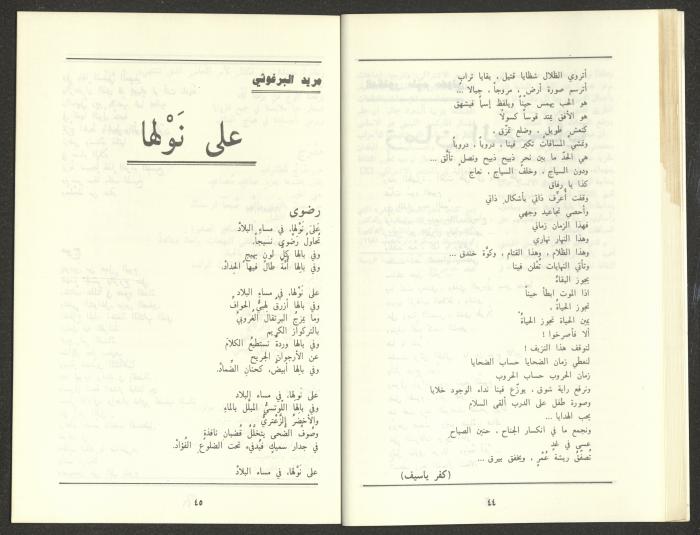 أتروي الظلال شظايا قتيل ، بقايا تراب
أترسم صورة أرض ، مروجاً ، جبالا ...
هو الحب يهمس حيناً ويلفظ إسماً فيشهق
هو الأفق يمتد قوساً كسولا
كنعش طويل ، وضلع تمزّق .
وتمشي المسافات تكبر فينا ، دروبا ، دروباً
هي الحدّ ما بين نحر ذبيح ذبيح ونصل تألّق ...
ودون السياج ، وخلف السياج ، نعاج
كذا يا رفاق
وقفت أعرّف ذاتي بأشكال ذاتي
وأحصي تجاعيد وجهي
فهذا الزمان زماني
وهذا النهار نهاري
وهذا الظلام ، وهذا القتام ، وكوّة خندق ...
وتأتي النهايات تُعلن فينا
يجوز البقاءُ
اذا الموت ابطأ حيناً
تجوز الحياةُ ،
يمين الحياة تجوز الحياةُ
ألا فأصرخوا !
لتوقف هذا النزيف !
لنعطي زمان الضحايا حساب الضحايا
زمان الحروب حساب الحروب
ونرفع راية شوق ، يوزّع فينا نداء الوجود خلايا
وصورة طفل على الدرب ألقى السلام
يحب الهدايا ...
ونجمع ما في انكسار الجناح ، حنين الصباح
عسى في غدٍ
تُصفّقُ ريشة عُمْرٍ ، ويخفق بيرق ...
(كفر ياسيف)
٤٤
مريد البرغوثي
على نَوْلها
رضوى
على نَوْلها، في مساء البلاد
تُحاولُ رضوى نسيجاً.
وفي بالها كل لونٍ بهيجٍ
وفي بالها أُمّةٌ طال فيها الحِدادْ.
على نَوْلها، في مساء البلاد
وفي بالها أزرقٌ لهبيُّ الحوافِّ
وما يمزجُ البرتقالَ الغُروبيَّ
بالتركوازِ الكريم
وفي بالها وردةٌ تستطيعُ الكلامَ
عن الأرجوانِ الجريح
وفي بالها أبيضٌ، كحنانِ الضِّمادْ.
على نَولها، في مساء البلاد
وفي بالها اللّوتسيُّ المبلّل بالماءِ
والأخضرُ الزَّعتريُّ
وصُوف الضحى يتخلّلُ قضبان نافذةٍ
في جدار سميكٍ فيُدفىء تحت الضلوعِ الفُؤادْ.
على نَوْلها، في مساء البلادْ
٤٥